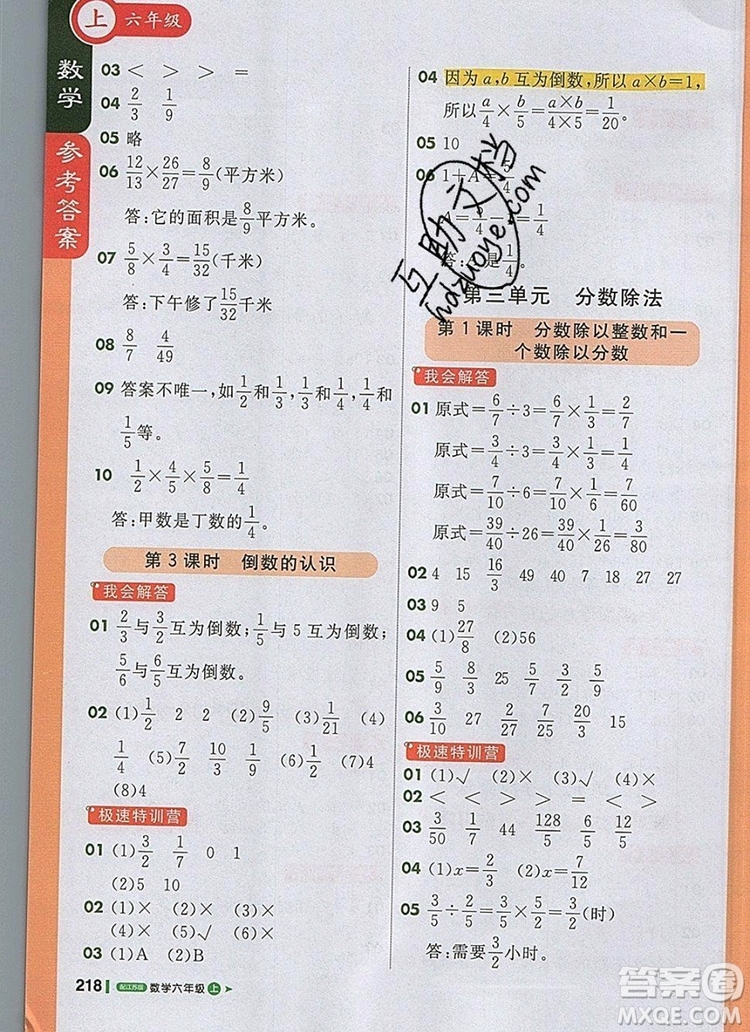 上 六年级
数学
参考答案
03 < > > =
04 2/3 1/9
05 略
06 12/13×26/27=8/9(平方米)
答:它的面积是8/9平方米。
07 5/8×3/4=15/32(千米)
答:下午修了15/32千米。
08 8/7 4/49
09 答案不唯一,如1/2和1/3,1/3和1/4,1/4和
1/5等。
10 1/2×4/5×5/8=1/4
答:甲数是丁数的1/4。
第3课时 倒数的认识
我会解答
01 2/3与3/2互为倒数;1/5与5互为倒数;
5/6与6/5互为倒数。
02 (1)1/2 2 2 (2)9/5 (3)1/21 (4)
1/4 (5)7/2 10/7 (6)1/2 (7)4
(8)4
极速特训营
01 (1)3/2 1/7 0 1
(2)5 10
02 (1)× (2)× (3)×
(4)× (5)√ (6)×
03 (1)A (2)B
218 配江苏版 数学六年级 上
04 因为a,b互为倒数,所以a×b=1,
所以a/4×b/5=a×b/4×5=1/20。
05 10
06 1+A=5/4
A=5/4-1=1/4
是1/4。
第三单元 分数除法
第1课时 分数除以整数和一
个数除以分数
我会解答
01 原式=6/7÷3=6/7×1/3=2/7
原式=3/5÷4=3/5×1/4=3/20
原式=7/10÷5=7/10×1/5=7/50
原式=39/40÷26=39/40×1/26=3/80
02 4 15 16/3 49 40 27 54
03 9 5
04 (1)27/8 (2)56
05 5/9 8/3 25 5/4 3/5 5/9
06 3/10 27 27/2 5/7 20/3 15
极速特训营
01 (1)√ (2)× (3)× (4)×
02 < < > > < >
03 3/50 1/7 44 128/5 6/5 64
04 (1)x=2/3 (2)x=7/2
05 3/5÷2/5=3/5×5/2=3/2(时)
答:需要3/2小时。
互助文档
hdzuoye.com
答案圈
MXQE.COM